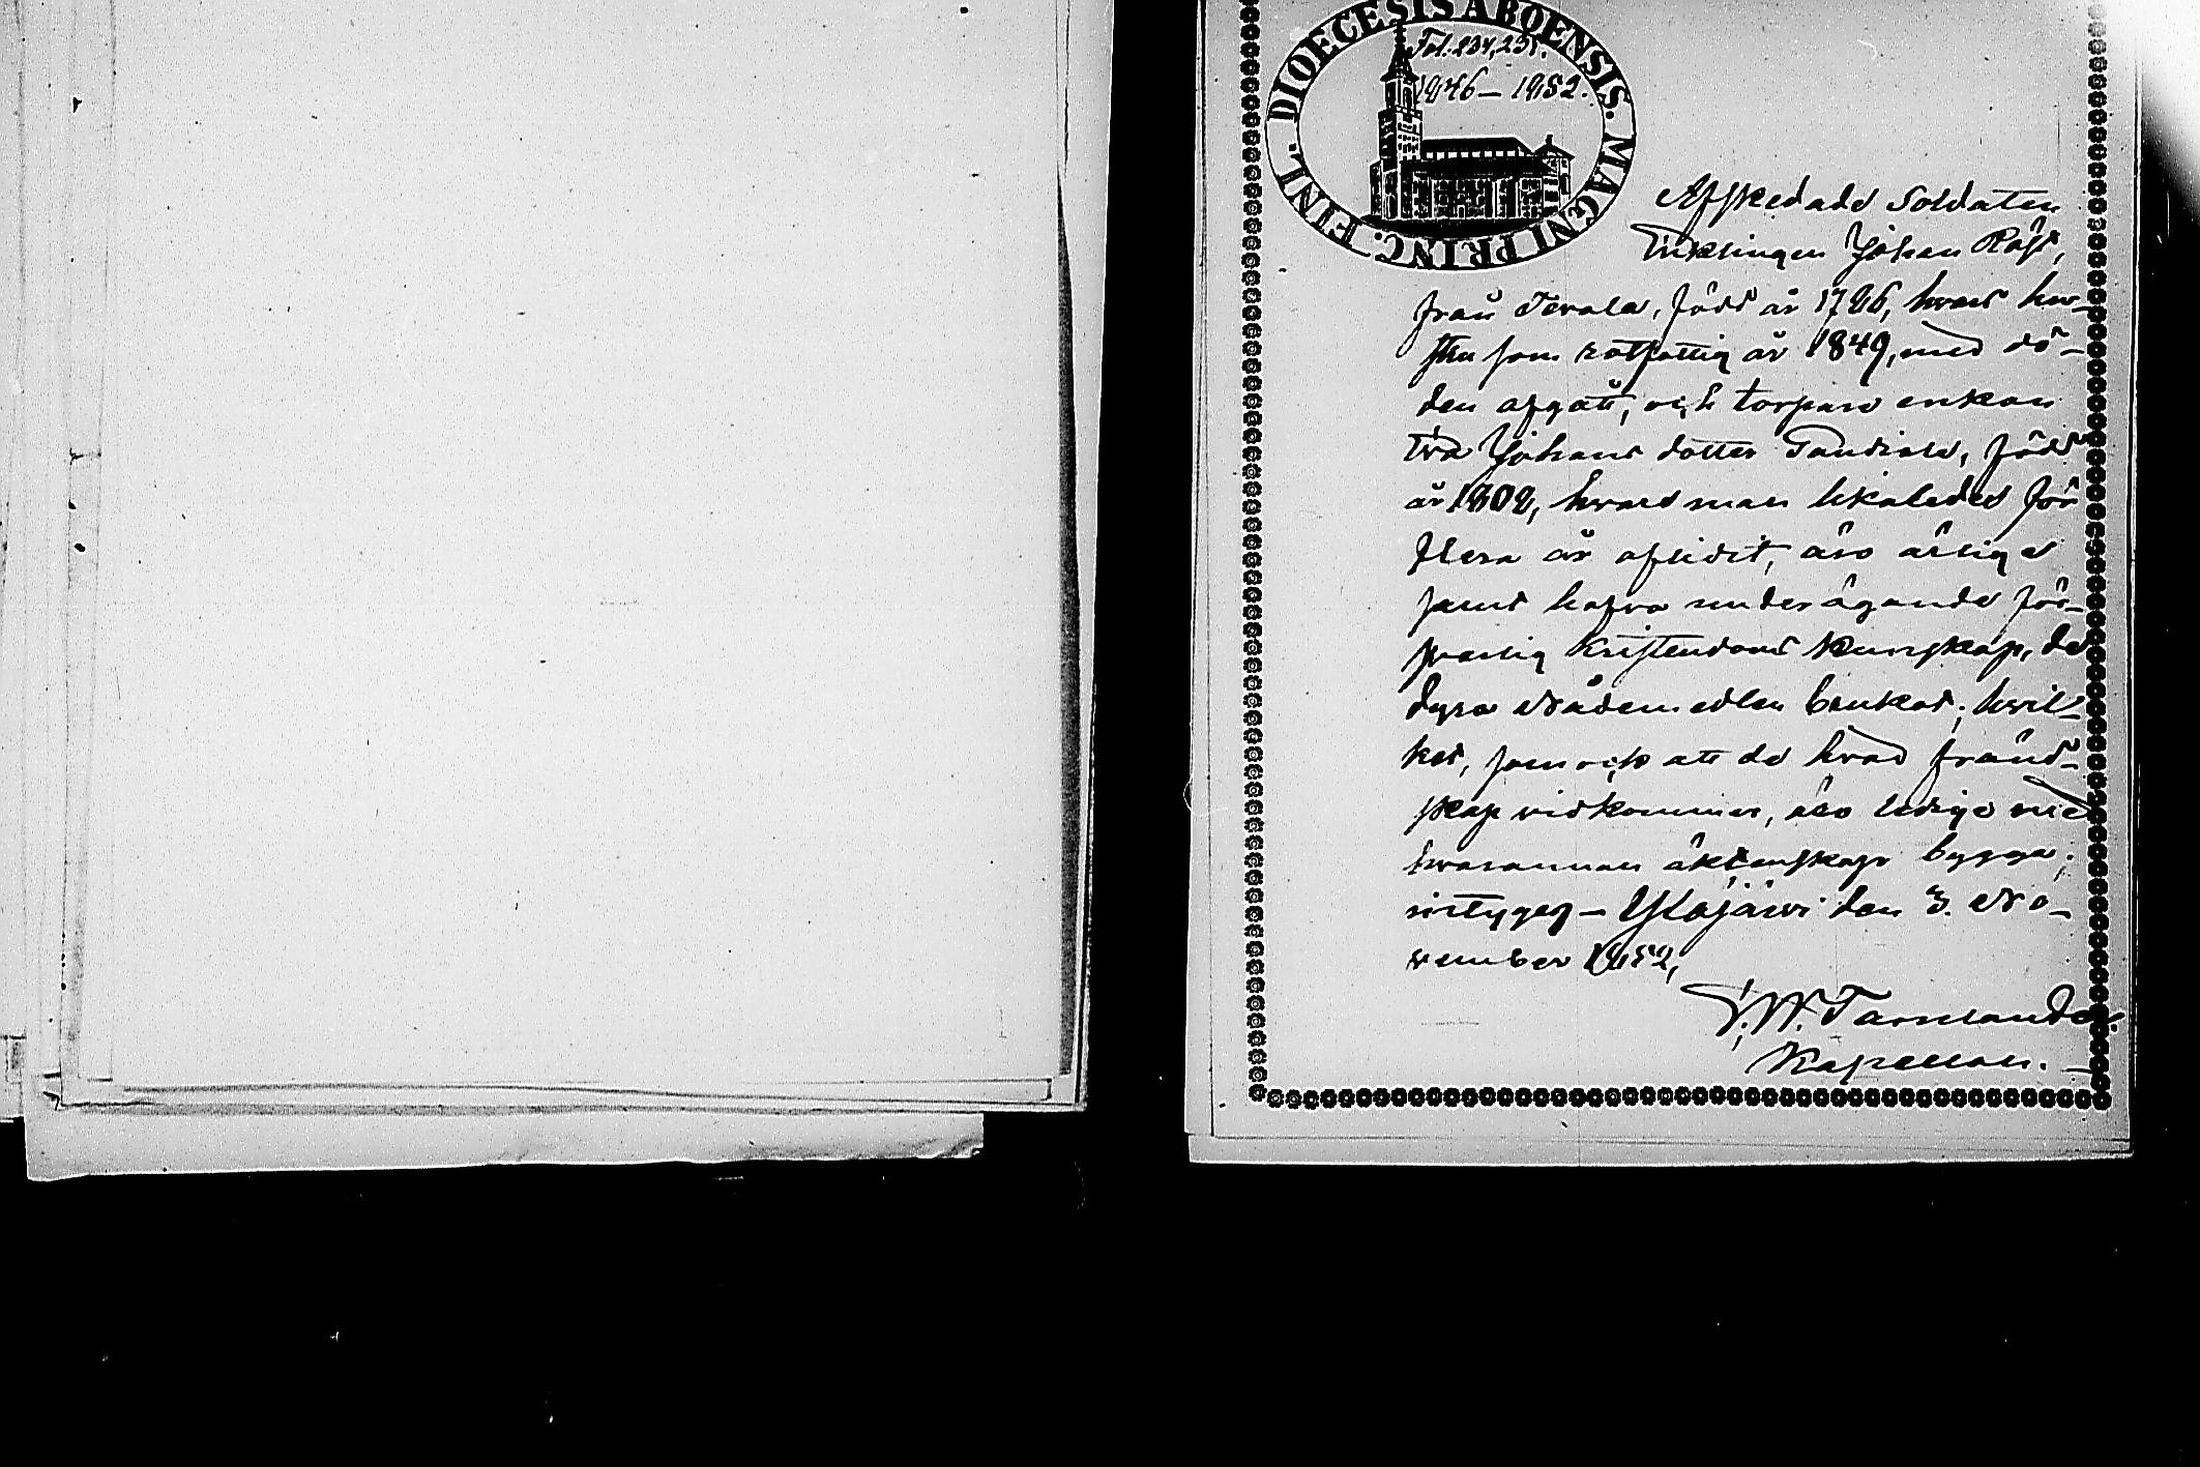 DIOECESIS ABOENSIS. MAGNI PRINC. FINL.
Fol. 234, 235.
1846 – 1852.
Afskedade Soldaten
Enklingen Johan Räf,
från Terola, född år 1786, hvars hu-
stru som rotfattig år 1849, med dö-
den afgått, och torpare enkan
Eva Johans dotter född
år 1808, hvars man likaledes för
flera år aflidit, äro ärlige
samt hafva underägande för-
svarlig kristendoms kunskap, de
dyra Nådemedlen brukat; hvil-
ket, som ock att de hvad fränd-
skap vidkommer, äro ledige med
hvarannan äktenskap bygga;
intygas – Ylöjärvi den 3. No-
vember 1852,
W.
Kapellan.